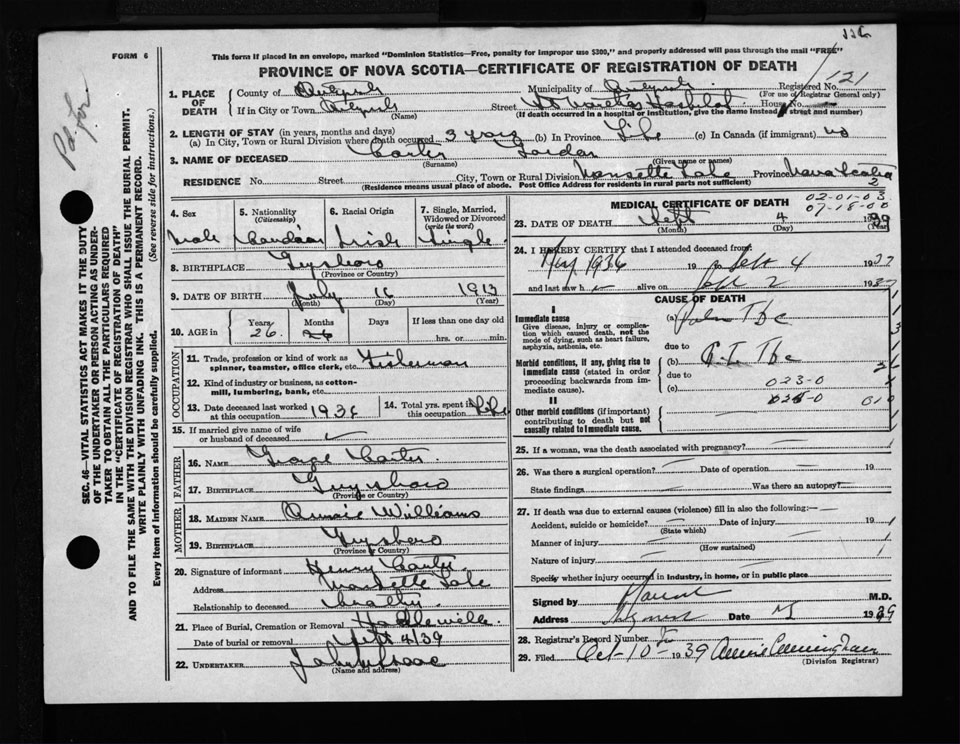 FORM 6
This form if placed in an envelope, marked "Dominion Statistics—Free, penalty for improper use $300," and properly addressed will pass through the mail "FREE"
PROVINCE OF NOVA SCOTIA—CERTIFICATE OF REGISTRATION OF DEATH
1. PLACE OF DEATH
County of
Municipality of
Registered No. 121
(For use of Registrar General only)
If in City or Town
(Name)
Street
House No.
(If death occurred in a hospital or institution, give the name instead of street and number)
2. LENGTH OF STAY (in years, months and days)
(a) In City, Town or Rural Division where death occurred 3 years (b) In Province Life (c) In Canada (if immigrant) no
3. NAME OF DECEASED Carter Gordon
(Surname) (Given name or names)
RESIDENCE No. Street City, Town or Rural Division Province Nova Scotia
(Residence means usual place of abode. Post Office Address for residents in rural parts not sufficient) 2
4. Sex
Male
5. Nationality
(Citizenship)
Canadian
6. Racial Origin
Irish
7. Single, Married, Widowed or Divorced
(write the word)
Single
8. BIRTHPLACE Guysboro
(Province or Country)
9. DATE OF BIRTH July 16 1913
(Month) (Day) (Year)
10. AGE in
Years
26
Months
Days
If less than one day old
hrs. or min.
OCCUPATION
11. Trade, profession or kind of work as spinner, teamster, office clerk, etc. Fisherman
12. Kind of industry or business, as cotton-mill, lumbering, bank, etc.
13. Date deceased last worked at this occupation 1936
14. Total yrs. spent in this occupation Life
15. If married give name of wife or husband of deceased
FATHER
16. NAME George Carter
17. BIRTHPLACE Guysboro
(Province or Country)
MOTHER
18. MAIDEN NAME Annie Williams
19. BIRTHPLACE Guysboro
(Province or Country)
20. Signature of informant Henry Carter
Address
Relationship to deceased Brother
21. Place of Burial, Cremation or Removal
Date of burial or removal Sept 4/39
22. UNDERTAKER
(Name and address)
MEDICAL CERTIFICATE OF DEATH
02-01-03
07-18-00
23. DATE OF DEATH Sept 4 1939
(Month) (Day) (Year)
24. I HEREBY CERTIFY that I attended deceased from:
1936 19 to Sept 4 1939
and last saw h alive on Sept 2 1939
CAUSE OF DEATH
I
Immediate cause
Give disease, injury or complication which caused death, not the mode of dying, such as heart failure, asphyxia, asthenia, etc.
(a) Tbc
due to
Morbid conditions, if any, giving rise to immediate cause (stated in order proceeding backwards from immediate cause).
(b) G.I. Tbc
due to
(c) 023-0
II
Other morbid conditions (if important) contributing to death but not causally related to immediate cause.
25. If a woman, was the death associated with pregnancy?
26. Was there a surgical operation? Date of operation 19
State findings Was there an autopsy?
27. If death was due to external causes (violence) fill in also the following:—
Accident, suicide or homicide? Date of injury 19
(State which)
Manner of injury
(How sustained)
Nature of injury
Specify whether injury occurred in industry, in home, or in public place
Signed by M.D.
Address Date 1939
28. Registrar's Record Number
29. Filed Oct-10th 1939 Annie Cunningham
(Division Registrar)
SEC. 46—VITAL STATISTICS ACT MAKES IT THE DUTY
OF THE UNDERTAKER OR PERSON ACTING AS UNDER-
TAKER TO OBTAIN ALL THE PARTICULARS REQUIRED
IN THE "CERTIFICATE OF REGISTRATION OF DEATH"
AND TO FILE THE SAME WITH THE DIVISION REGISTRAR WHO SHALL ISSUE THE BURIAL PERMIT.
WRITE PLAINLY WITH UNFADING INK. THIS IS A PERMANENT RECORD.
Every item of information should be carefully supplied. (See reverse side for instructions.)